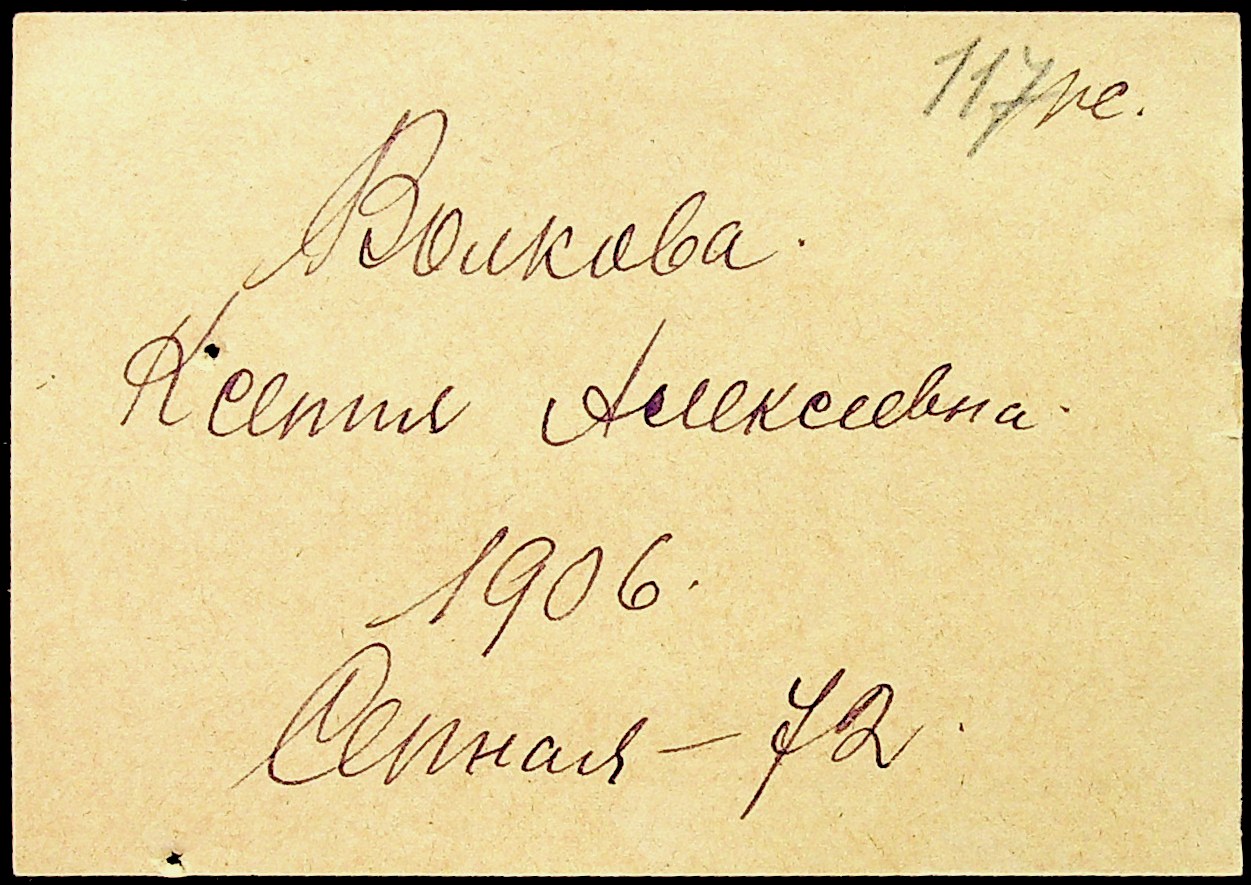 117
Волкова.
Ксения Алексеевна.
1906.
Сенная – 72.